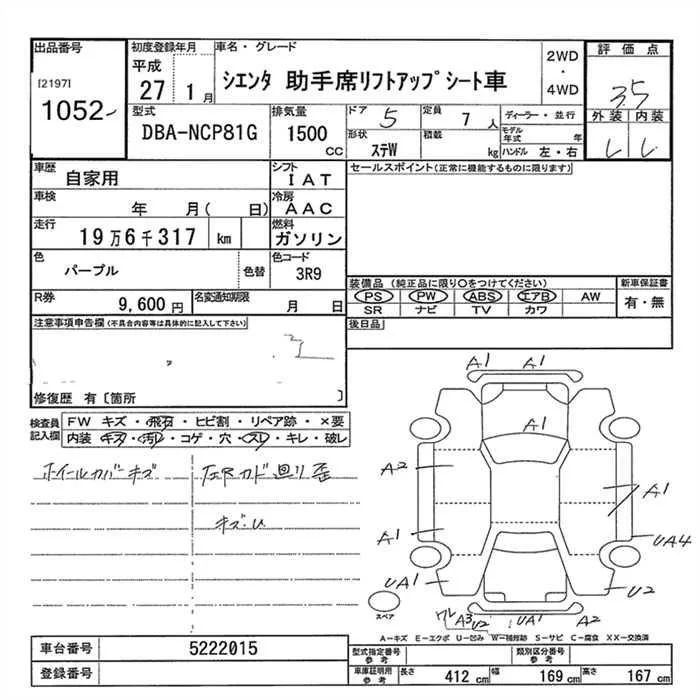 出品番号
[2197]
1052
初度登録年月
平成
27 1月
車名・グレード
シエンタ 助手席リフトアップシート車
2WD
・
4WD
評価点
3.5
外装 内装
型式
DBA-NCP81G
排気量
1500
CC
ドア 5
形状
ステW
定員 7 人
積載 kg
ディーラー・並行
モデル年式 年
ハンドル 左・右
車歴
自家用
シフト
IAT
セールスポイント(正常に機能するものに限ります)
車検
年 月( 日)
冷房
AAC
走行
19万6千317 km
燃料
ガソリン
色
パープル
色替
色コード
3R9
装備品(純正品に限り〇をつけてください)
PS PW ABS エアB AW
SR ナビ TV カワ
新車保証書
有・無
R券
9,600円
名変通知期限
月 日
後日品
注意事項申告欄(不具合内容等は具体的に記入して下さい)
修復歴 有〔箇所 〕
検査員
記入欄
FW キズ・飛石・ヒビ割・リペア跡・×要
内装 キズ・汚レ・コゲ・穴・スレ・キレ・破レ
ホイールカバーキズ
左Rカド廻り歪
キズ・U
A1
A1
A1
A2
A1
A1
UA1
UA4
U2
ワレ A3 U2
UA1
スペア
A-キズ E-エクボ U-凹み W-補修跡 S-サビ C-腐食 XX-交換済
車台番号
5222015
登録番号
型式指定番号
参考
類別区分番号
参考
車庫証明用
参考
長さ 412 cm
幅 169 cm
高さ 167 cm